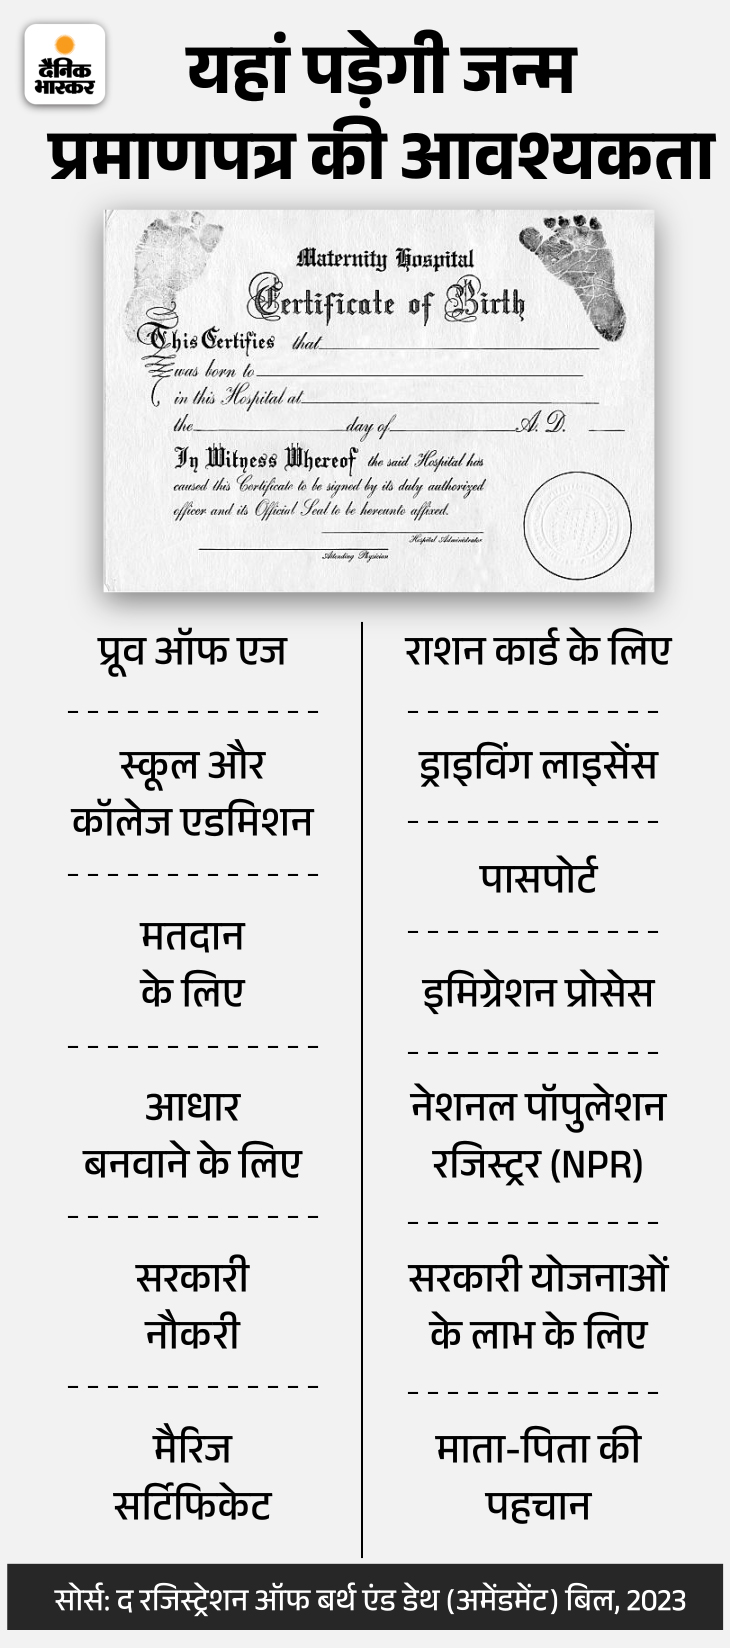 दैनिक
भास्कर
यहां पड़ेगी जन्म
प्रमाणपत्र की आवश्यकता
Maternity Hospital
Certificate of Birth
This Certifies that
was born to
in this Hospital at
the day of A. D.
In Witness Whereof the said Hospital has
caused this Certificate to be signed by its duly authorized
officer and its Official Seal to be hereunto affixed.
Hospital Administrator
Attending Physician
प्रूव ऑफ एज
स्कूल और
कॉलेज एडमिशन
मतदान
के लिए
आधार
बनवाने के लिए
सरकारी
नौकरी
मैरिज
सर्टिफिकेट
राशन कार्ड के लिए
ड्राइविंग लाइसेंस
पासपोर्ट
इमिग्रेशन प्रोसेस
नेशनल पॉपुलेशन
रजिस्ट्रर (NPR)
सरकारी योजनाओं
के लाभ के लिए
माता-पिता की
पहचान
सोर्स: द रजिस्ट्रेशन ऑफ बर्थ एंड डेथ (अमेंडमेंट) बिल, 2023